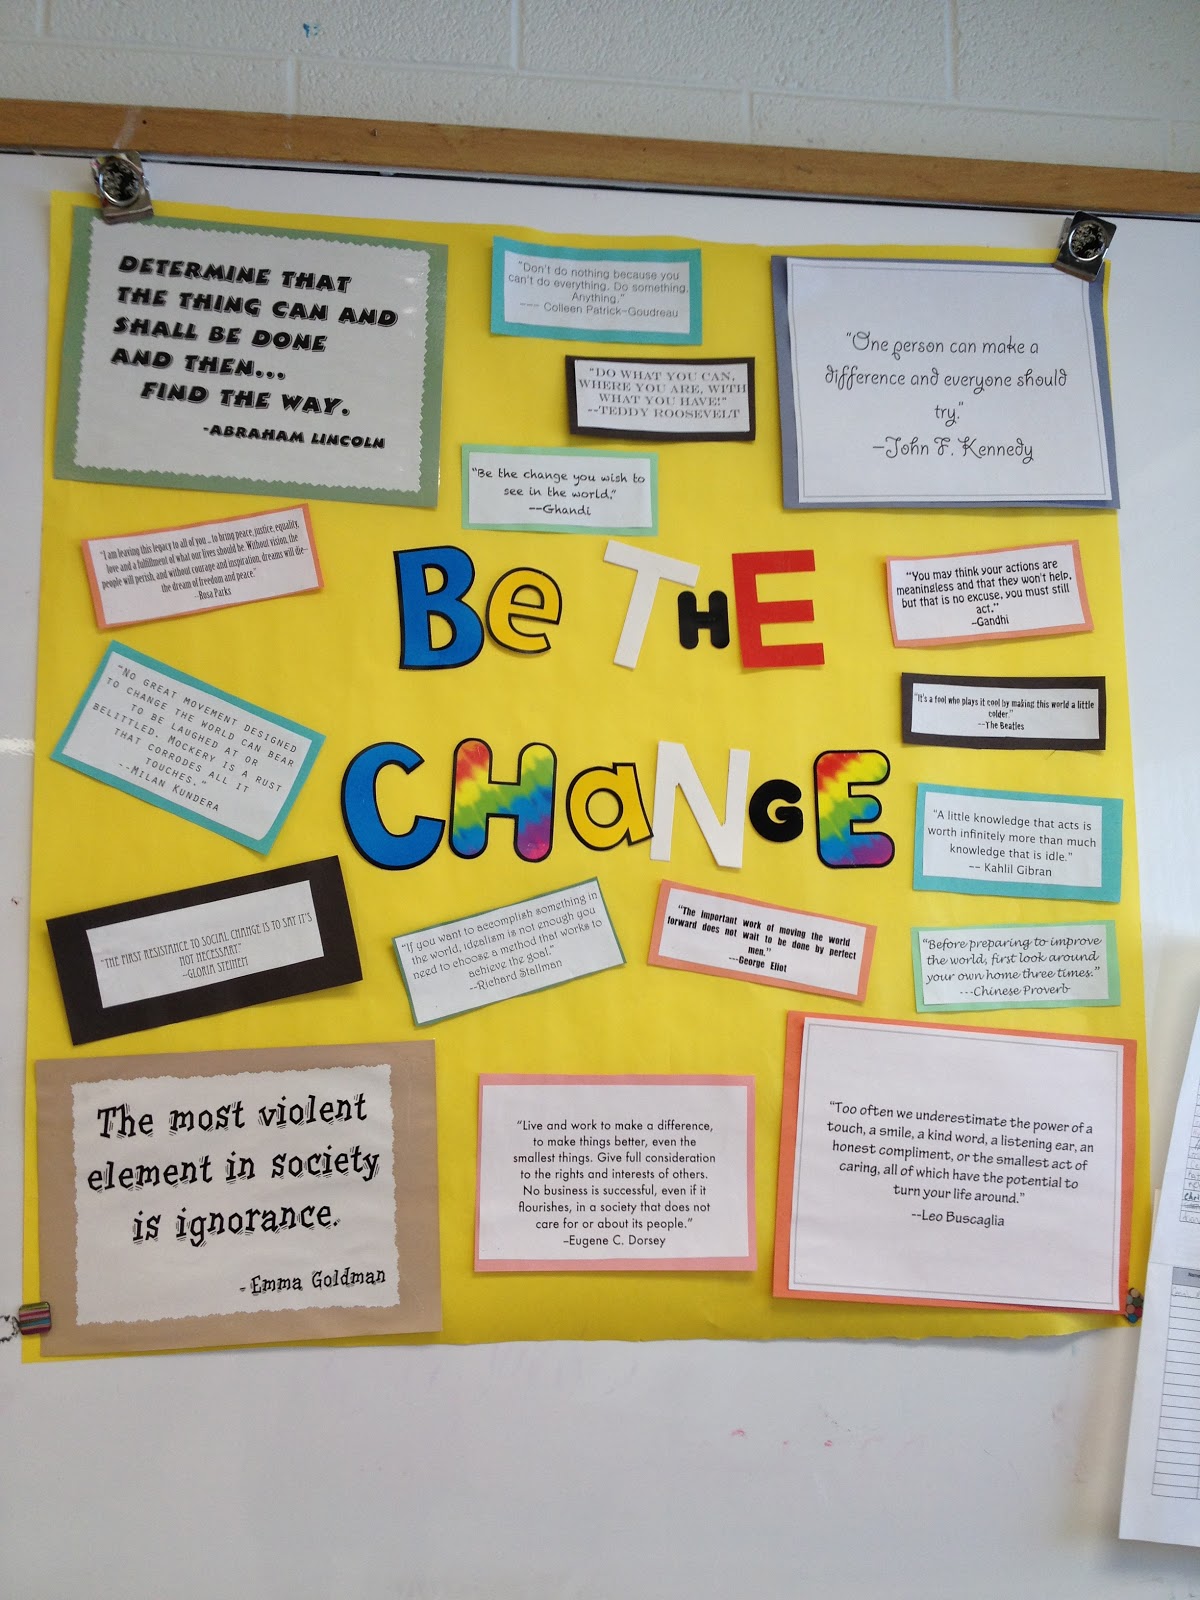 DETERMINE THAT
THE THING CAN AND
SHALL BE DONE
AND THEN...
FIND THE WAY.
-ABRAHAM LINCOLN
"Don't do nothing because you
can't do everything. Do something.
Anything."
--- Colleen Patrick-Goudreau
"DO WHAT YOU CAN,
WHERE YOU ARE, WITH
WHAT YOU HAVE!"
--TEDDY ROOSEVELT
"One person can make a
difference and everyone should
try."
--John F. Kennedy
"Be the change you wish to
see in the world."
--Ghandi
"I am leaving this legacy to all of you ... to bring peace, justice, equality,
love and a fulfillment of what our lives should be. Without vision, the
people will perish, and without courage and inspiration, dreams will die--
the dream of freedom and peace."
--Rosa Parks
Be THE
CHaNGE
"You may think your actions are
meaningless and that they won't help,
but that is no excuse, you must still
act."
-Gandhi
"NO GREAT MOVEMENT DESIGNED
TO CHANGE THE WORLD CAN BEAR
TO BE LAUGHED AT OR
BELITTLED. MOCKERY IS A RUST
THAT CORRODES ALL IT
TOUCHES."
--MILAN KUNDERA
"It's a fool who plays it cool by making this world a little
colder."
--The Beatles
"A little knowledge that acts is
worth infinitely more than much
knowledge that is idle."
-- Kahlil Gibran
"THE FIRST RESISTANCE TO SOCIAL CHANGE IS TO SAY IT'S
NOT NECESSARY."
--GLORIA STEINEM
"If you want to accomplish something in
the world, idealism is not enough you
need to choose a method that works to
achieve the goal."
--Richard Stallman
"The important work of moving the world
forward does not wait to be done by perfect
men."
---George Eliot
"Before preparing to improve
the world, first look around
your own home three times."
---Chinese Proverb
The most violent
element in society
is ignorance.
- Emma Goldman
"Live and work to make a difference,
to make things better, even the
smallest things. Give full consideration
to the rights and interests of others.
No business is successful, even if it
flourishes, in a society that does not
care for or about its people."
-Eugene C. Dorsey
"Too often we underestimate the power of a
touch, a smile, a kind word, a listening ear, an
honest compliment, or the smallest act of
caring, all of which have the potential to
turn your life around."
--Leo Buscaglia